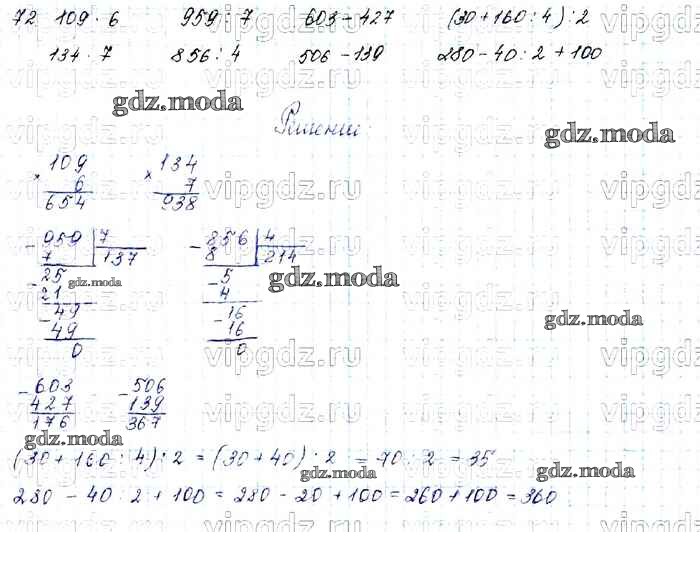 72 109 · 6 959 : 7 603 - 427 (30 + 160 : 4) : 2
134 · 7 856 : 4 506 - 139 280 - 40 : 2 + 100
gdz.moda
Решение:
gdz.moda
× 109 × 134
6 7
654 938
- 959 7 - 856 4
7 137 8 214
- 25 - 5
gdz.moda
gdz.moda
21 4
- 49 - 16
49 16
0 0
gdz.moda
- 603 - 506
427 139
176 367
gdz.moda
(30 + 160 : 4) : 2 = (30 + 40) : 2 = 70 : 2 = 35
gdz.moda
gdz.moda
280 - 40 : 2 + 100 = 280 - 20 + 100 = 260 + 100 = 360
vipgdz.ru